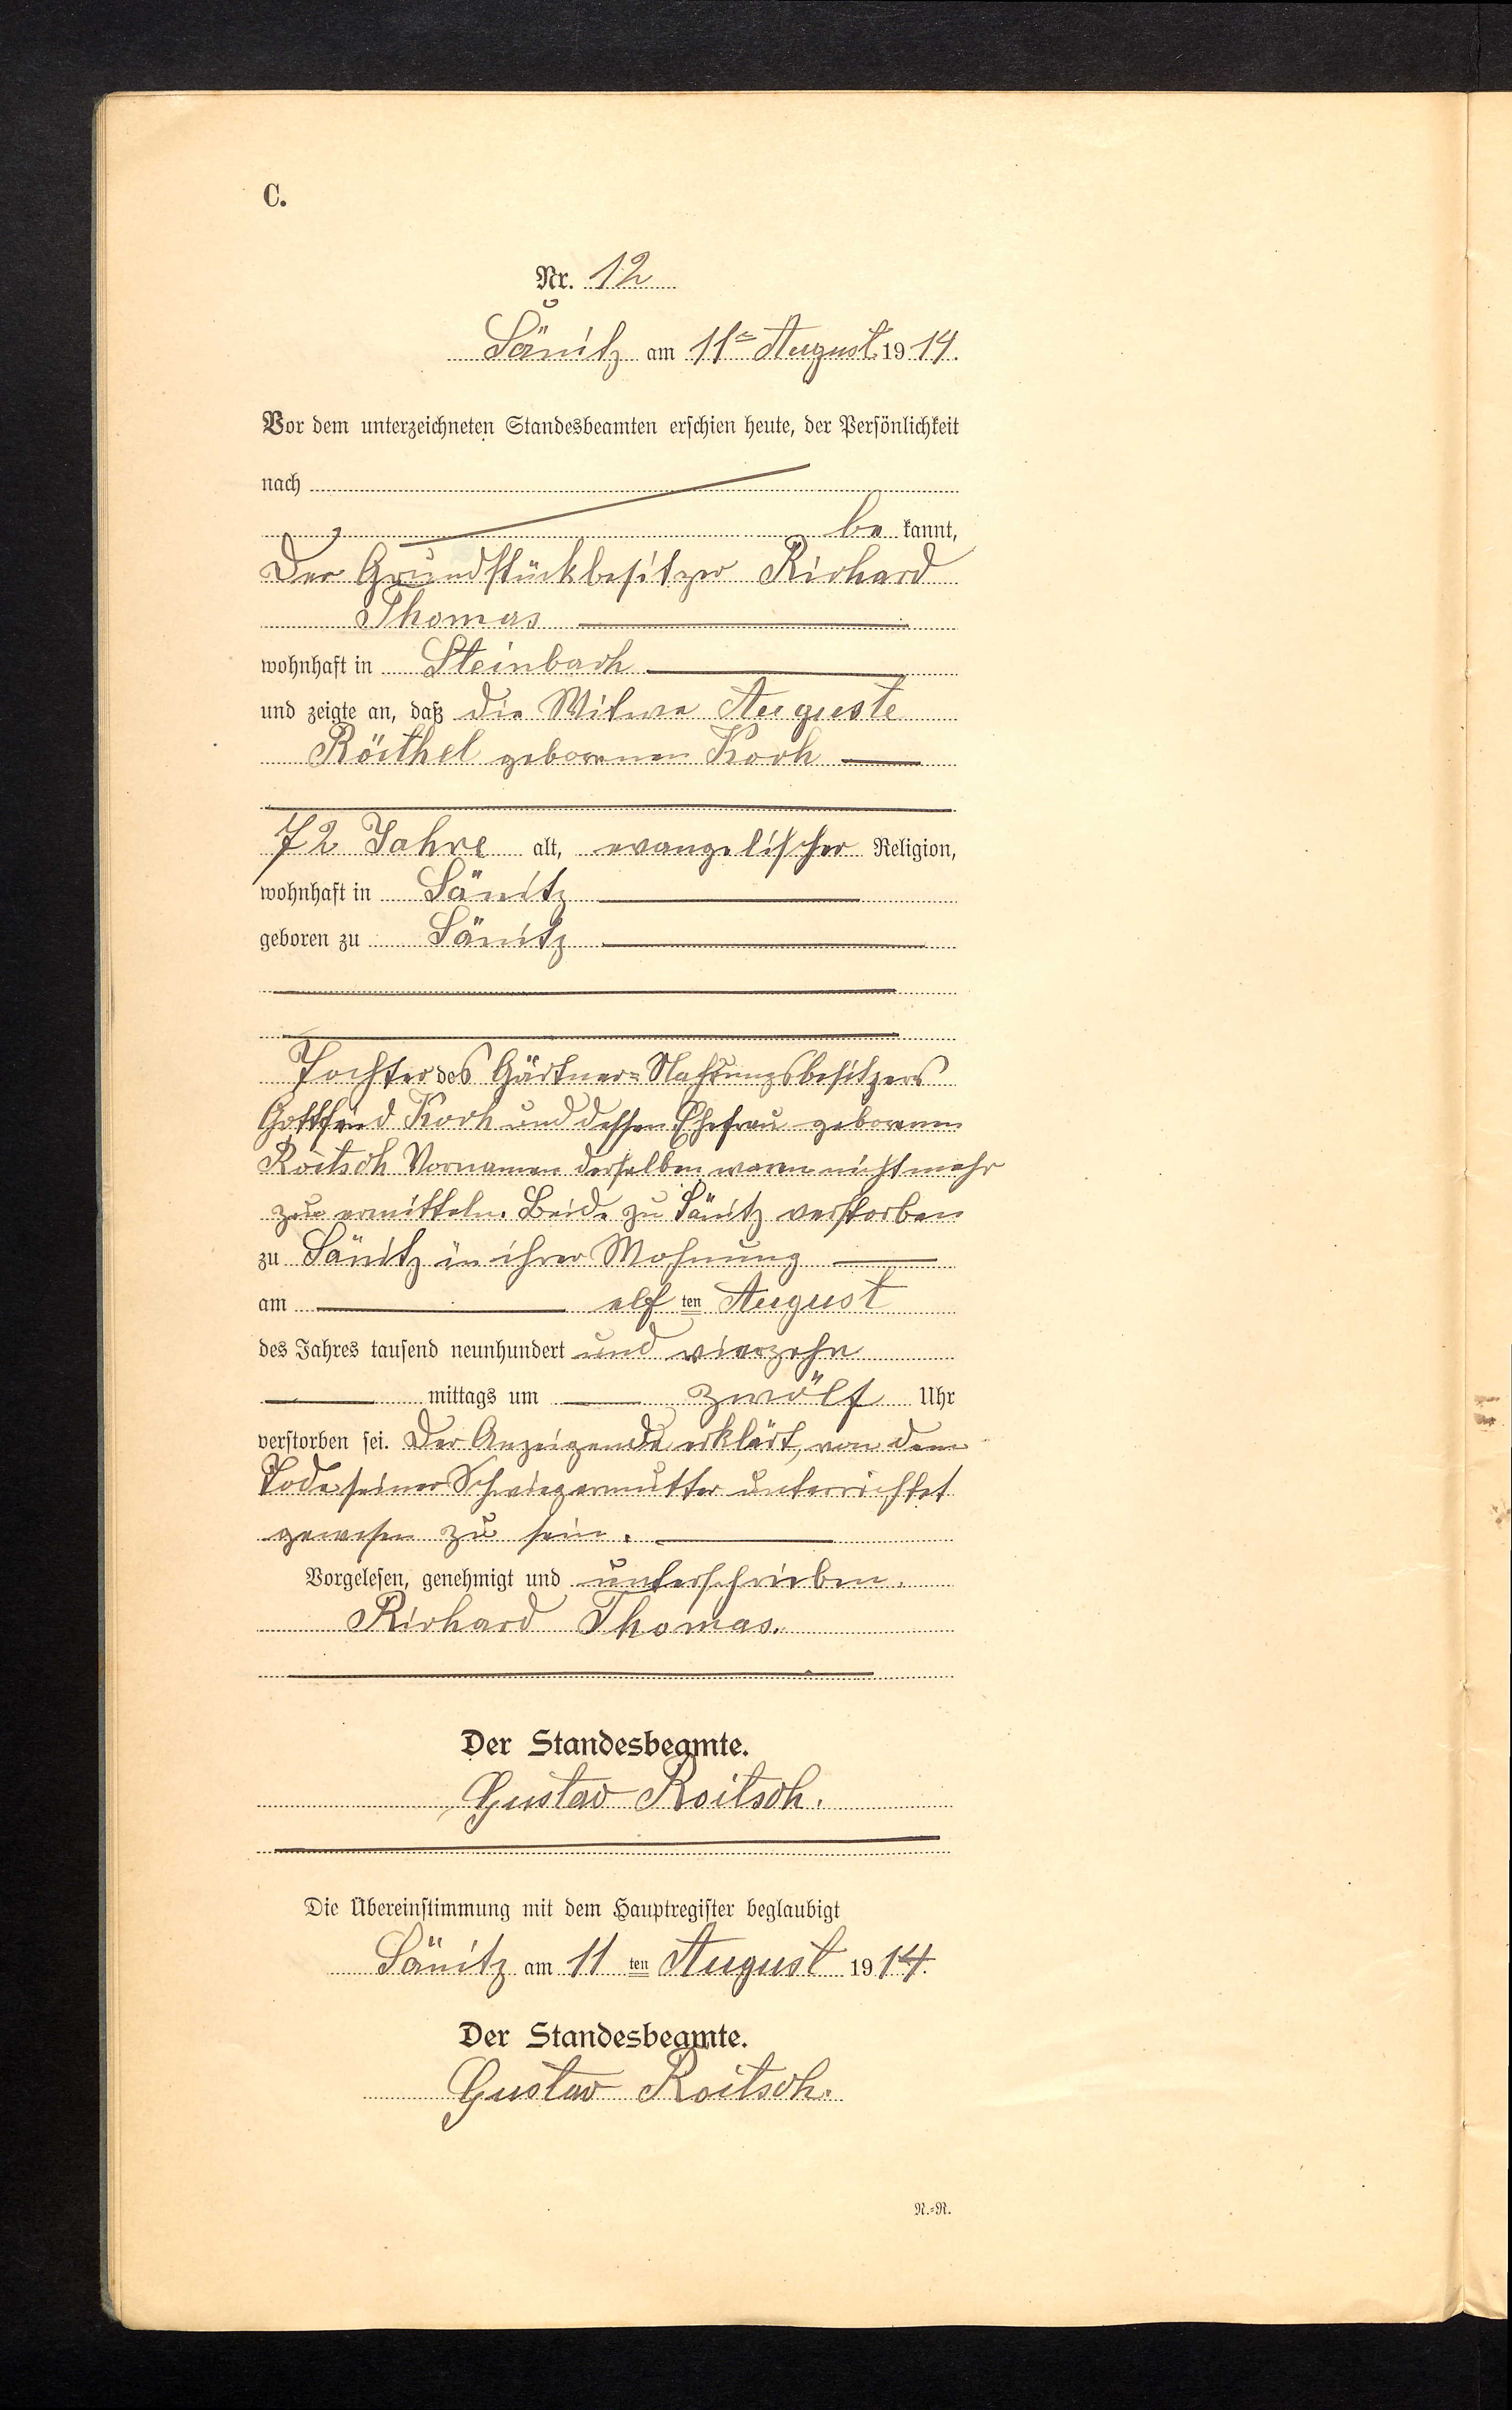 C.
Nr. 12
Sänitz am 11ten August 1914.
Vor dem unterzeichneten Standesbeamten erschien heute, der Persönlichkeit
nach
be kannt,
Der Grundstückbesitzer Richard
Thomas
wohnhaft in Steinbach
und zeigte an, daß die Witwe Auguste
Röithel geborenen Koch
72 Jahre alt, evangelischer Religion,
wohnhaft in Sänitz
geboren zu Sänitz
Tochter des Gärtner=Nahrungsbesitzers
Gottfried Koch und dessen Ehefrau geborenen
Roitsch Vornamen derselben waren nicht mehr
zu ermitteln. Beide zu Sänitz verstorben
zu Sänitz in ihrer Wohnung
am elf ten August
des Jahres tausend neunhundert und vierzehn
mittags um zwölf Uhr
verstorben sei. Der Anzeigende erklärt, von dem
Tode seiner Schwiegermutter unterrichtet
gewesen zu sein.
Vorgelesen, genehmigt und unterschrieben.
Richard Thomas.
Der Standesbeamte.
Gustav Roitsch.
Die Übereinstimmung mit dem Hauptregister beglaubigt
Sänitz am 11 ten August 1914.
Der Standesbeamte.
Gustav Roitsch.
N.=R.